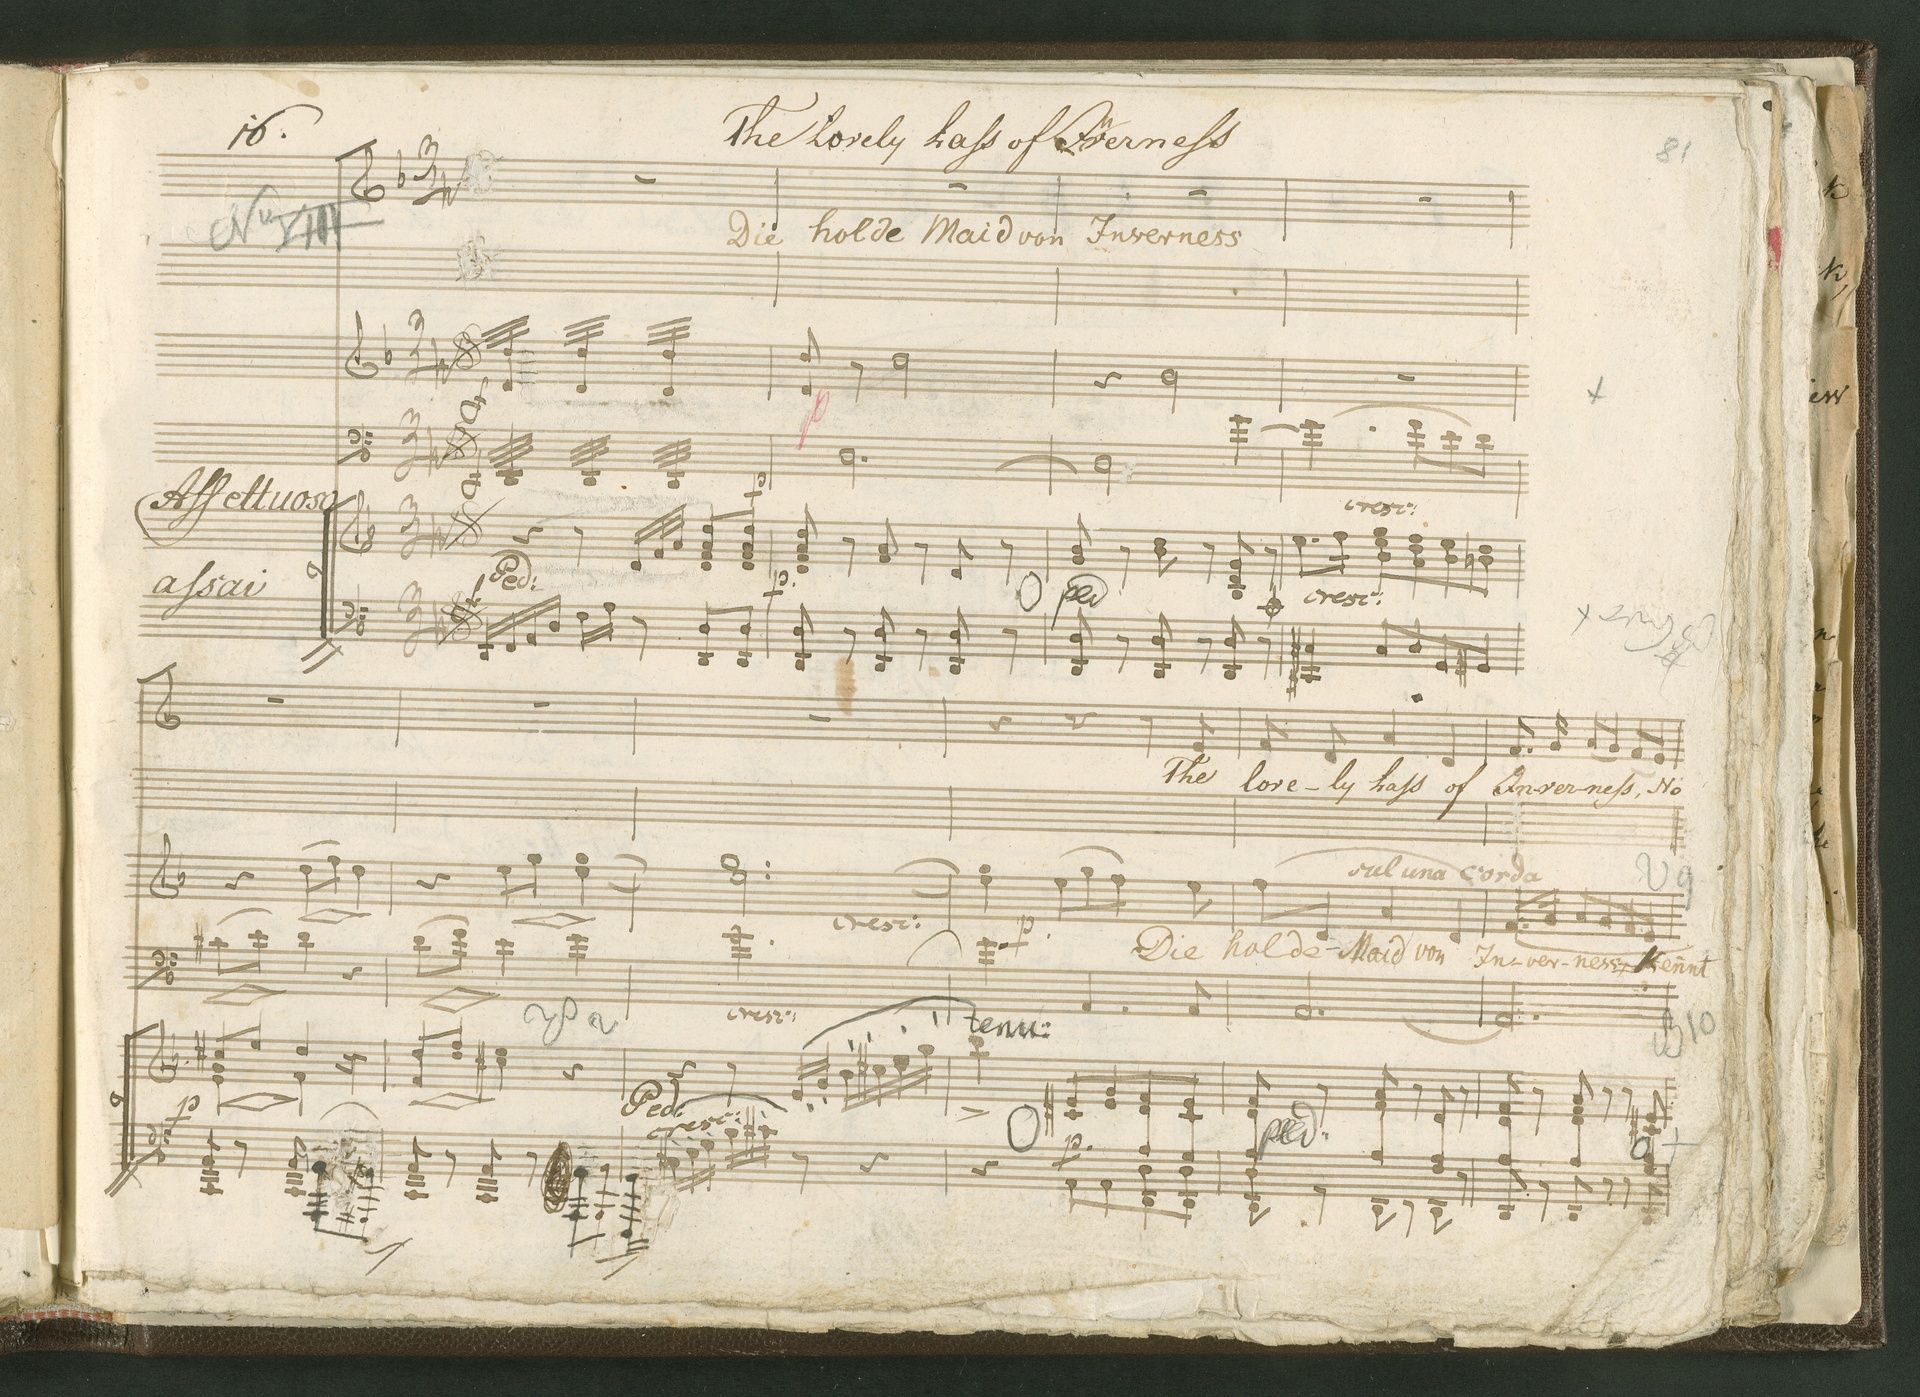 16.
The Lovely Lass of Inverness
81
No VIII
Die holde Maid von Inverness
p
p
Affettuoso
assai
cresc:
Ped:
p.
O ped
cresc:
The love-ly Lass of In-ver-ness, No
sul una corda
cresc:
p.
Die holde Maid von In-ver-ness, Kennt
cresc:
tenu:
B10
p
Ped:
cresc:
O
p.
ped:
O